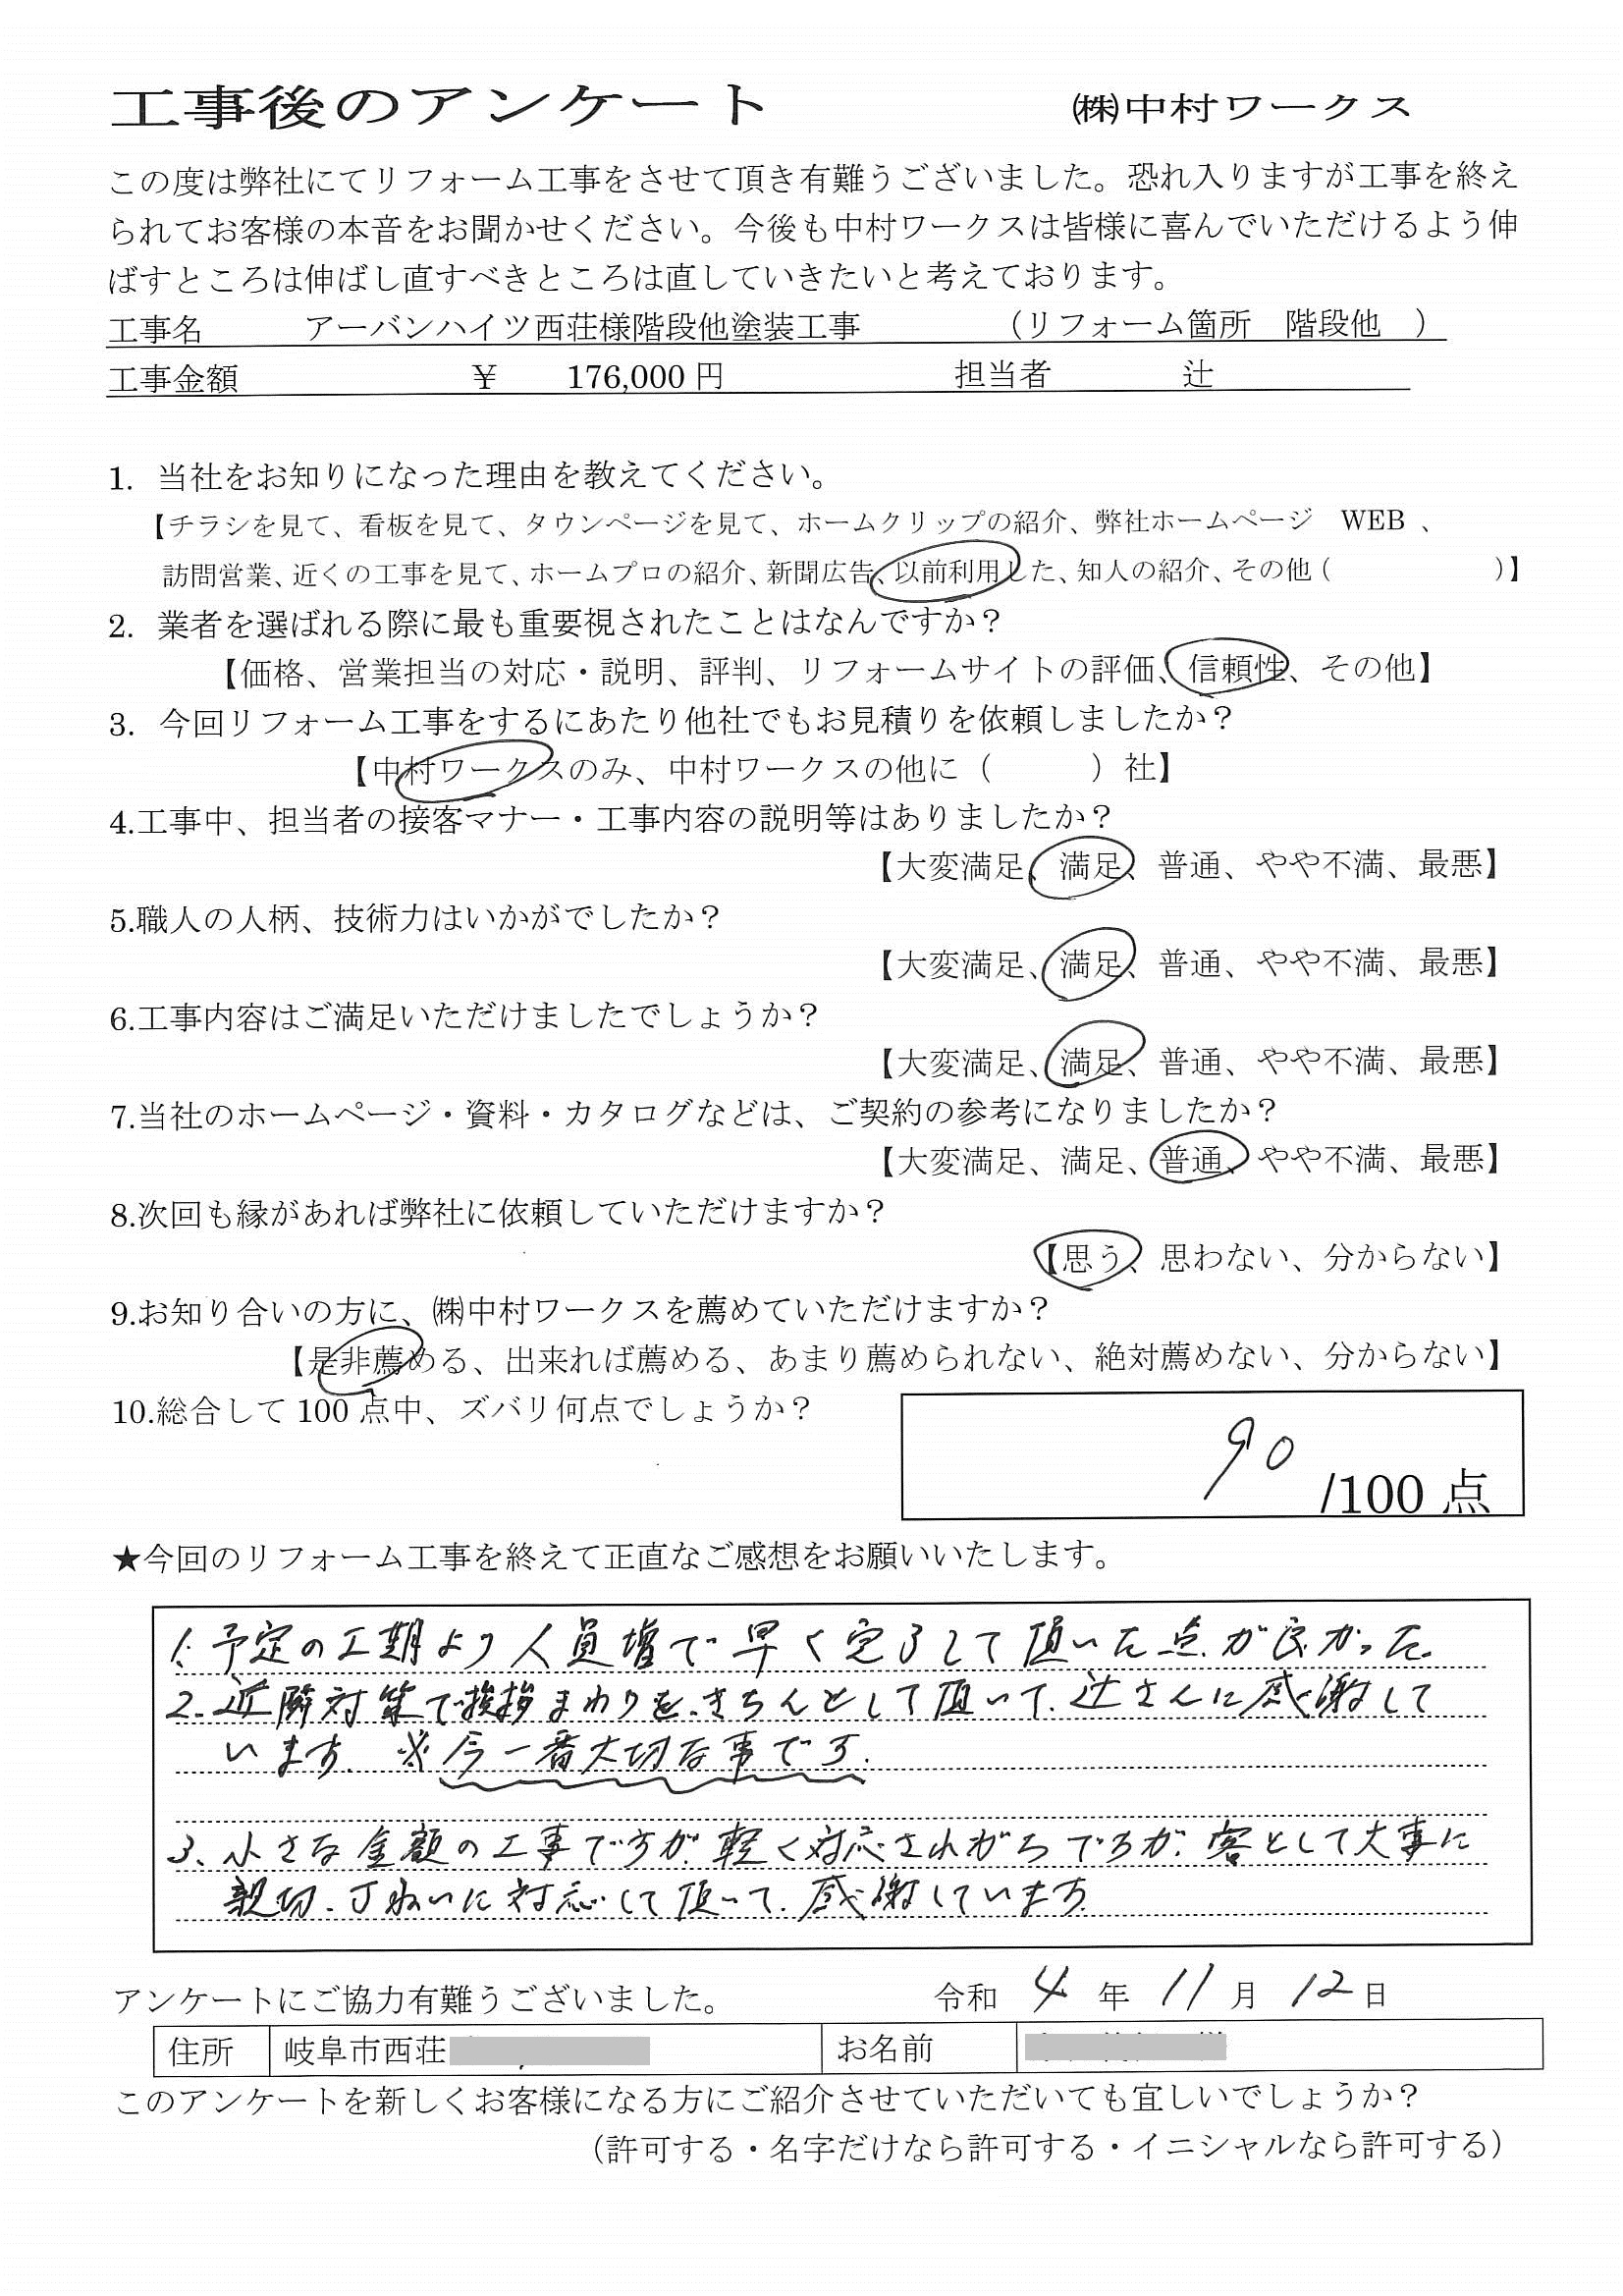 工事後のアンケート ㈱中村ワークス
この度は弊社にてリフォーム工事をさせて頂き有難うございました。恐れ入りますが工事を終え
られてお客様の本音をお聞かせください。今後も中村ワークスは皆様に喜んでいただけるよう伸
ばすところは伸ばし直すべきところは直していきたいと考えております。
工事名 アーバンハイツ西荘様階段他塗装工事 （リフォーム箇所 階段他 ）
工事金額 ￥ 176,000 円 担当者 辻
1. 当社をお知りになった理由を教えてください。
【チラシを見て、看板を見て、タウンページを見て、ホームクリップの紹介、弊社ホームページ WEB 、
訪問営業、近くの工事を見て、ホームプロの紹介、新聞広告、以前利用した、知人の紹介、その他（ ）】
2. 業者を選ばれる際に最も重要視されたことはなんですか？
【価格、営業担当の対応・説明、評判、リフォームサイトの評価、信頼性、その他】
3. 今回リフォーム工事をするにあたり他社でもお見積りを依頼しましたか？
【中村ワークスのみ、中村ワークスの他に（ ）社】
4.工事中、担当者の接客マナー・工事内容の説明等はありましたか？
【大変満足、満足、普通、やや不満、最悪】
5.職人の人柄、技術力はいかがでしたか？
【大変満足、満足、普通、やや不満、最悪】
6.工事内容はご満足いただけましたでしょうか？
【大変満足、満足、普通、やや不満、最悪】
7.当社のホームページ・資料・カタログなどは、ご契約の参考になりましたか？
【大変満足、満足、普通、やや不満、最悪】
8.次回も縁があれば弊社に依頼していただけますか？
【思う、思わない、分からない】
9.お知り合いの方に、㈱中村ワークスを薦めていただけますか？
【是非薦める、出来れば薦める、あまり薦められない、絶対薦めない、分からない】
10.総合して 100 点中、ズバリ何点でしょうか？
90 /100 点
★今回のリフォーム工事を終えて正直なご感想をお願いいたします。
1. 予定の工期より人員増で早く完了して頂いた点が良かった。
2. 近隣対策で挨拶まわりを、きちんとして頂いて、辻さんに感謝して
います。※今一番大切な事です。
3、小さな金額の工事ですが、軽く対応されがちですが、客として大事に
親切、丁ねいに対応して頂いて、感謝しています。
アンケートにご協力有難うございました。 令和 4 年 11 月 12 日
住所 岐阜市西荘 お名前
このアンケートを新しくお客様になる方にご紹介させていただいても宜しいでしょうか？
（許可する・名字だけなら許可する・イニシャルなら許可する）